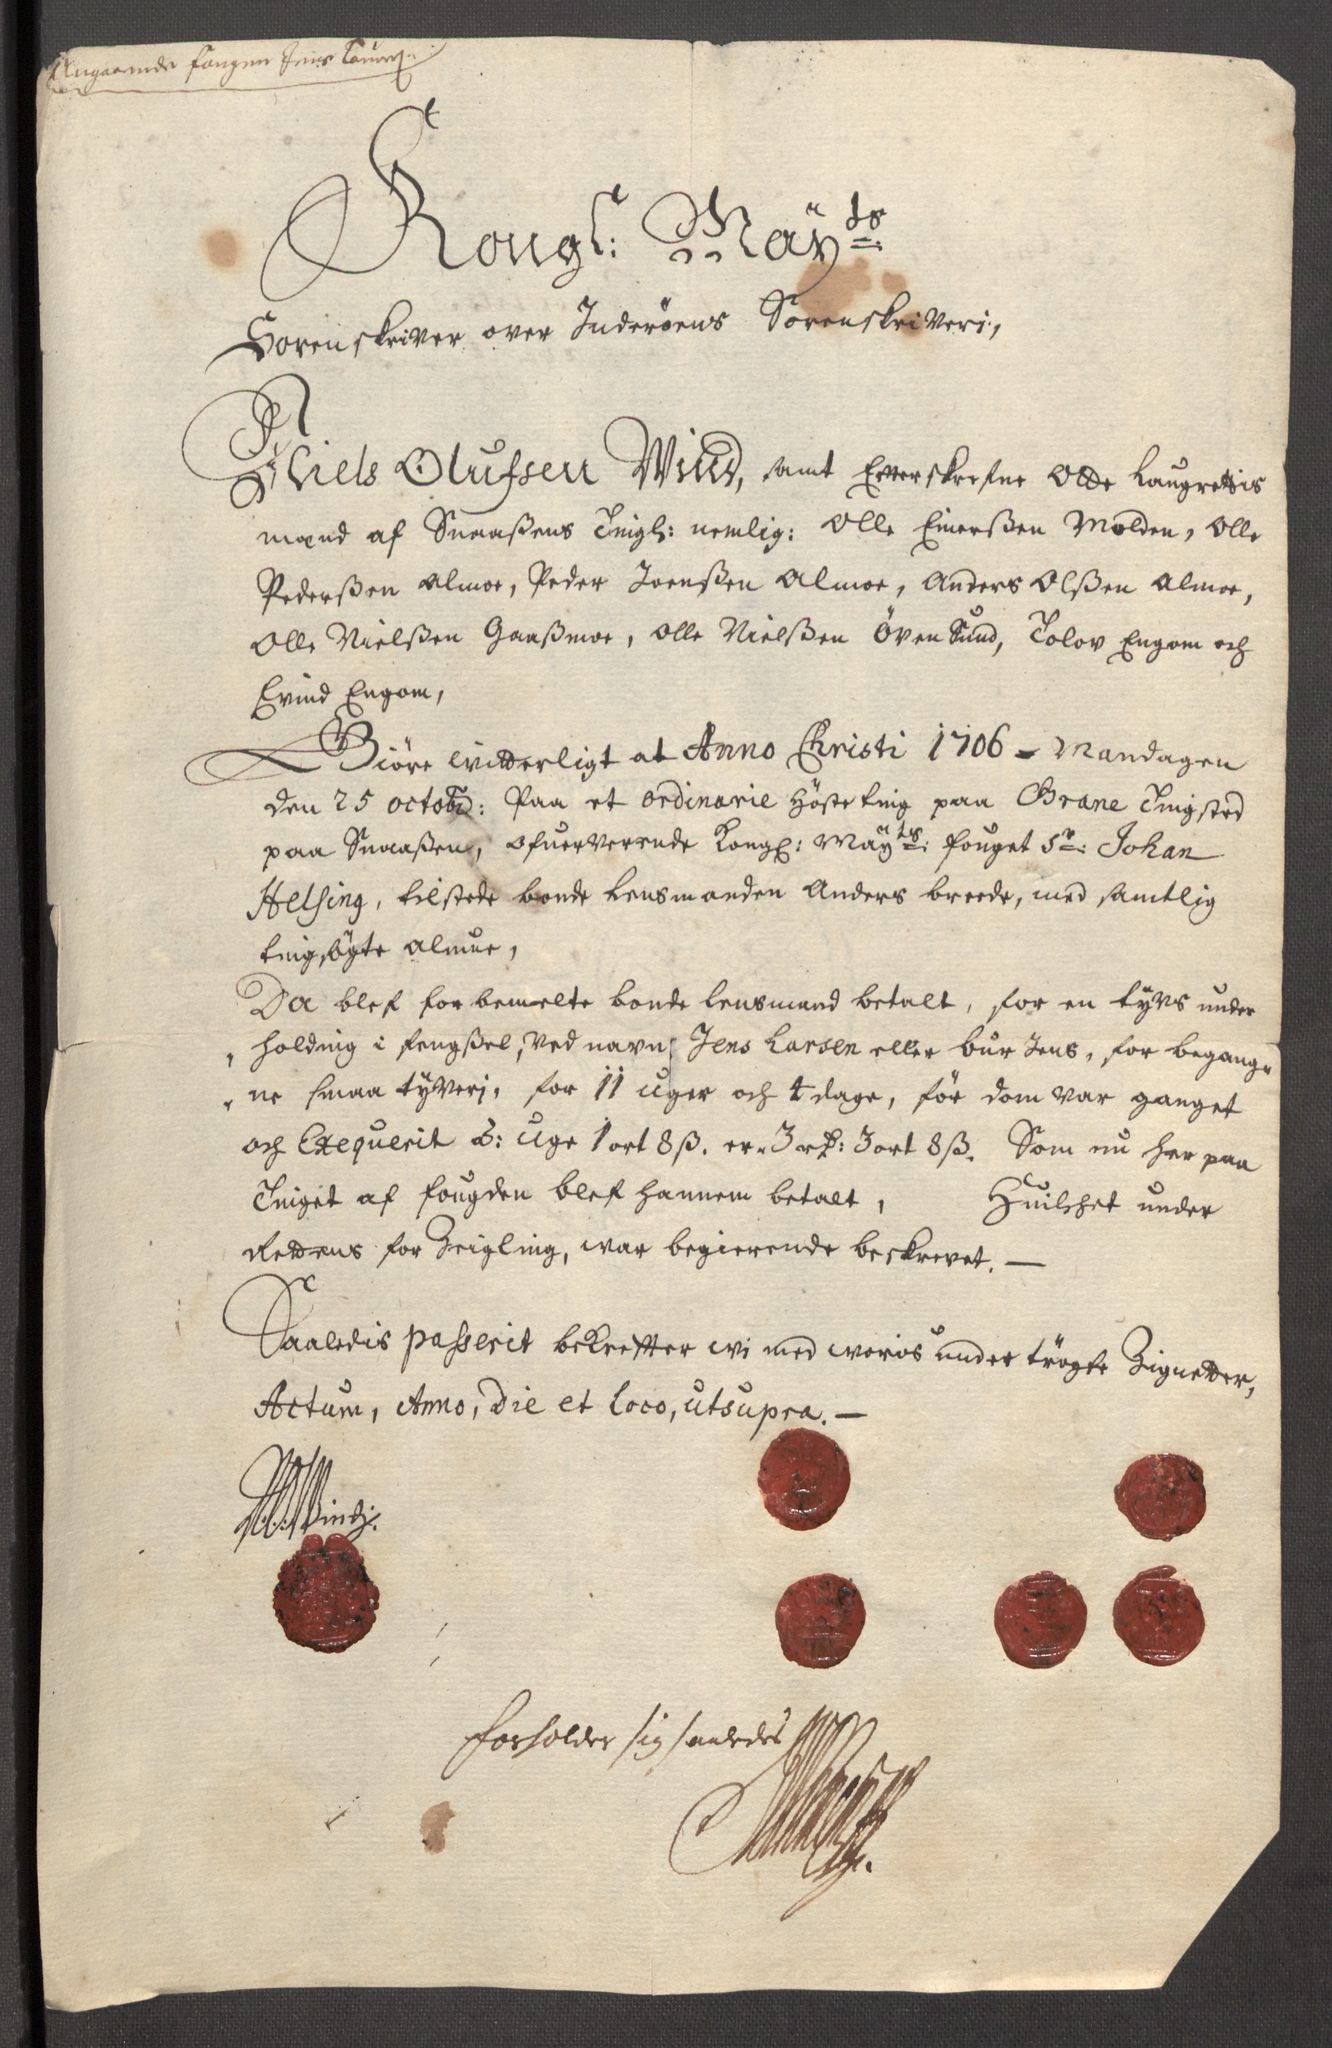 Angaaende fangen Jens
Kongl: Mäyts:
Sorenskriver over Inderöens Sorenskriveri,
Niels Olufsen Wind, samt Efterskrefne Otte Laugrettis
mænd af Snaaßens Tingl: nemlig: Olle Einerßen Molden, Olle
Pederßen Almoe, Peder Joenßen Almoe, Anders Olßen Almoe,
Olle Nielßen Gaaßmoe, Olle Nielßen Öven Sund, Tolov Engom och
Evind Engom,
Giöre witterligt at Anno Christi 1706 - Mandagen
den 25 octobr: Paa et ordinarie Höste ting paa Grane Tingsted
paa Snaaßen, ofuerverende Kongl: Mäyts: fouget Sr: Johan
Helsing, tilstede bonde Lensmanden Anders breede, med samtlig
tingsögte almue,
Da blef forbemelte bonde lensmand betalt, for en tyvs under
holding i fengßel, ved navn Jens Larsen eller bur Jens, for begang-
ne smaa tyveri, for 11 uger och 4 dage, för dom var ganget
och Exequerit â: Uge 1 ort 8 ß. er - 3 rd: 3 ort 8 ß. Som nu her paa
Tinget af fougden blef hannem betalt, Huilchet under
Rettens forZeigling, war begierende beskrevet. —
Saaledis passerit bekrefter wi med woris under trögte Zignetter,
Actum, Anno, Die et Loco, utsupra. —
N: O: Wind.
forholder sig saaledes